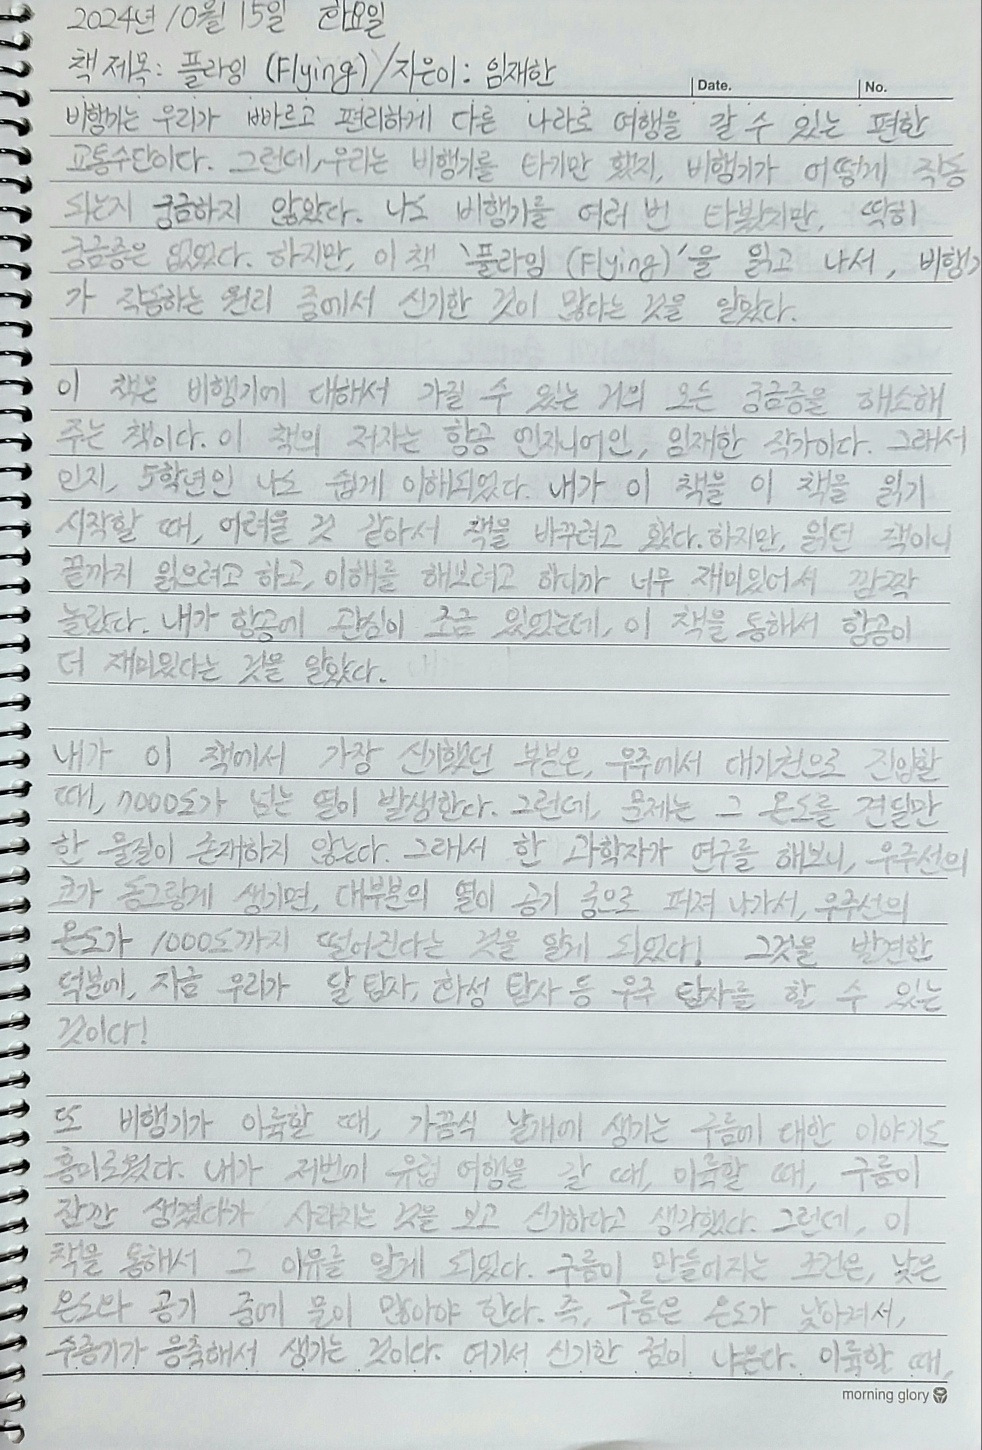 2024년 10월 15일 화요일
책 제목: 플라잉 (Flying) / 지은이: 임재한
Date. No.
비행기는 우리가 빠르고 편리하게 다른 나라로 여행을 갈 수 있는 편한
교통수단이다. 그런데, 우리는 비행기를 타기만 했지, 비행기가 어떻게 작동
되는지 궁금하지 않았다. 나도 비행기를 여러 번 타봤지만, 딱히
궁금증은 없었다. 하지만, 이 책 '플라잉 (Flying)'을 읽고 나서, 비행기
가 작동하는 원리 중에서 신기한 것이 많다는 것을 알았다.
이 책은 비행기에 대해서 가질 수 있는 거의 모든 궁금증을 해소해
주는 책이다. 이 책의 저자는 항공 엔지니어인, 임재한 작가이다. 그래서
인지, 5학년인 나도 쉽게 이해되었다. 내가 이 책을 이 책을 읽기
시작할 때, 어려울 것 같아서 책을 바꾸려고 했다. 하지만, 읽던 책이니
끝까지 읽으려고 하고, 이해를 해보려고 하니까 너무 재미있어서 깜짝
놀랐다. 내가 항공에 관심이 조금 있었는데, 이 책을 통해서 항공이
더 재미있다는 것을 알았다.
내가 이 책에서 가장 신기했던 부분은, 우주에서 대기권으로 진입할
때, 7000도가 넘는 열이 발생한다. 그런데, 문제는 그 온도를 견딜만
한 물질이 존재하지 않는다. 그래서 한 과학자가 연구를 해보니, 우주선의
코가 동그랗게 생기면, 대부분의 열이 공기 중으로 퍼져 나가서, 우주선의
온도가 1000도까지 떨어진다는 것을 알게 되었다! 그것을 발견한
덕분에, 지금 우리가 달 탐사, 화성 탐사 등 우주 탐사를 할 수 있는
것이다!
또 비행기가 이륙할 때, 가끔식 날개에 생기는 구름에 대한 이야기도
흥미로웠다. 내가 저번에 유럽 여행을 갈 때, 이륙할 때, 구름이
잠깐 생겼다가 사라지는 것을 보고 신기하다고 생각했다. 그런데, 이
책을 통해서 그 이유를 알게 되었다. 구름이 만들어지는 조건은, 낮은
온도와 공기 중에 물이 많아야 한다. 즉, 구름은 온도가 낮아져서,
수증기가 응축해서 생기는 것이다. 여기서 신기한 점이 나온다. 이륙할 때,
morning glory